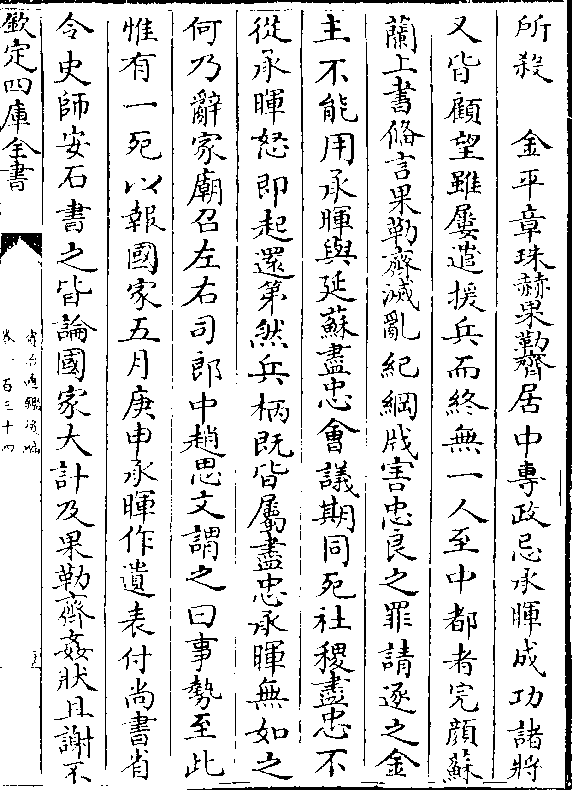 所殺　金平章珠赫果勒齊居中專政忌承暉成功諸將
又皆顧望雖屢遣援兵而終無一人至中都者完顔蘇
蘭上書偹言果勒齊滅亂紀綱戕害忠良之罪請逐之金
主不能用承暉與延蘇盡忠會議期同死社稷盡忠不
從承暉怒即起還第然兵柄既皆屬盡忠承暉無如之
何乃辭家廟召左右司郎中趙思文謂之曰事勢至此
惟有一死以報國家五月庚申承暉作遺表付尚書省
令史師安石書之皆論國家大計及果勒齊姦狀且謝不
欽定四庫全書
資治通鑑後編
卷一百三十四